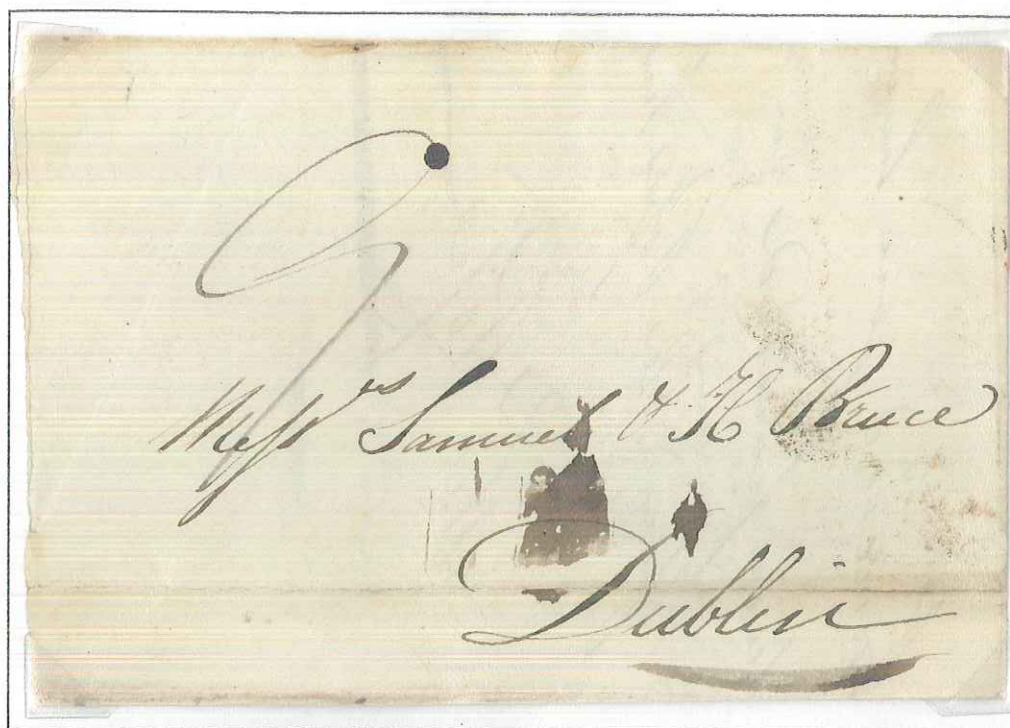 9
Messrs Samuel & H Bruce
Dublin